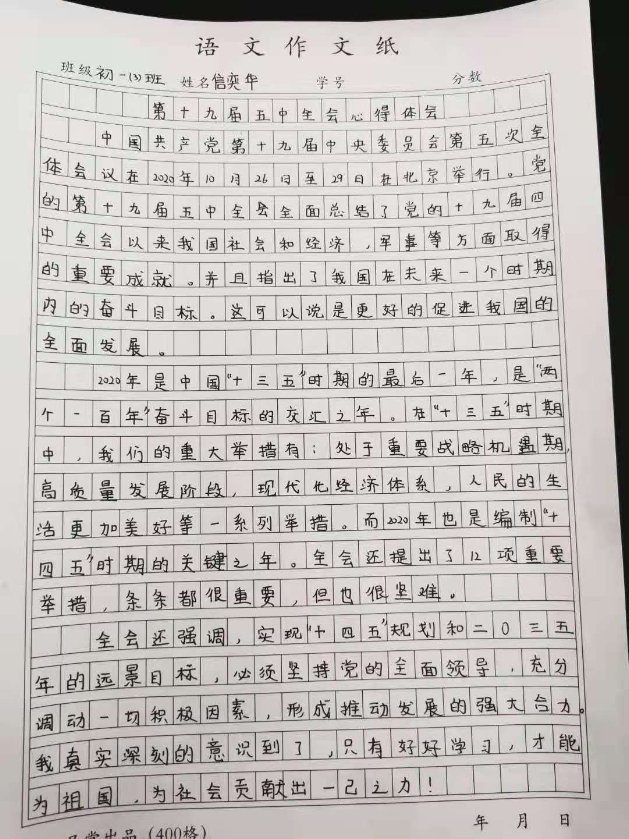 语文作文纸
班级初一(3)班 姓名信奕华 学号 分数
第十九届五中全会心得体会
中国共产党第十九届中央委员会第五次全
体会议在2020年10月26日至29日在北京举行。党
的第十九届五中全会全面总结了党的十九届四
中全会以来我国社会和经济，军事等方面取得
的重要成就。并且指出了我国在未来一个时期
内的奋斗目标。这可以说是更好的促进我国的
全面发展。
2020年是中国"十三五"时期的最后一年，是"两
个一百年"奋斗目标的交汇之年。在"十三五"时期
中，我们的重大举措有：处于重要战略机遇期，
高质量发展阶段，现代化经济体系，人民的生
活更加美好等一系列举措。而2020年也是编制"十
四五"时期的关键之年。全会还提出了12项重要
举措，条条都很重要，但也很坚难。
全会还强调，实现"十四五"规划和二〇三五
年的远景目标，必须坚持党的全面领导，充分
调动一切积极因素，形成推动发展的强大合力。
我真实深刻的意识到了，只有好好学习，才能
为祖国，为社会贡献出一己之力！
年 月 日
出品(400格)